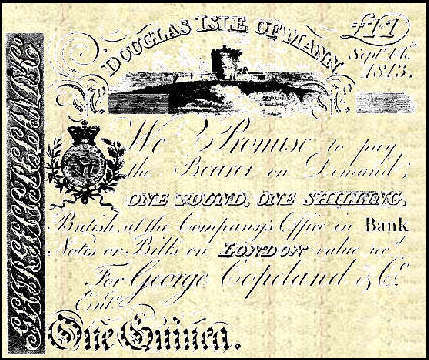 £1,,1
DOUGLAS ISLE OF MANN
Septr. 14.
1815.
We Promise to pay
the Bearer on Demand,
ONE POUND, ONE SHILLING,
British, at the Company's Office in Bank
Notes or Bills on LONDON value recd.
For George Copeland & Co.
Entd.
One Guinea.